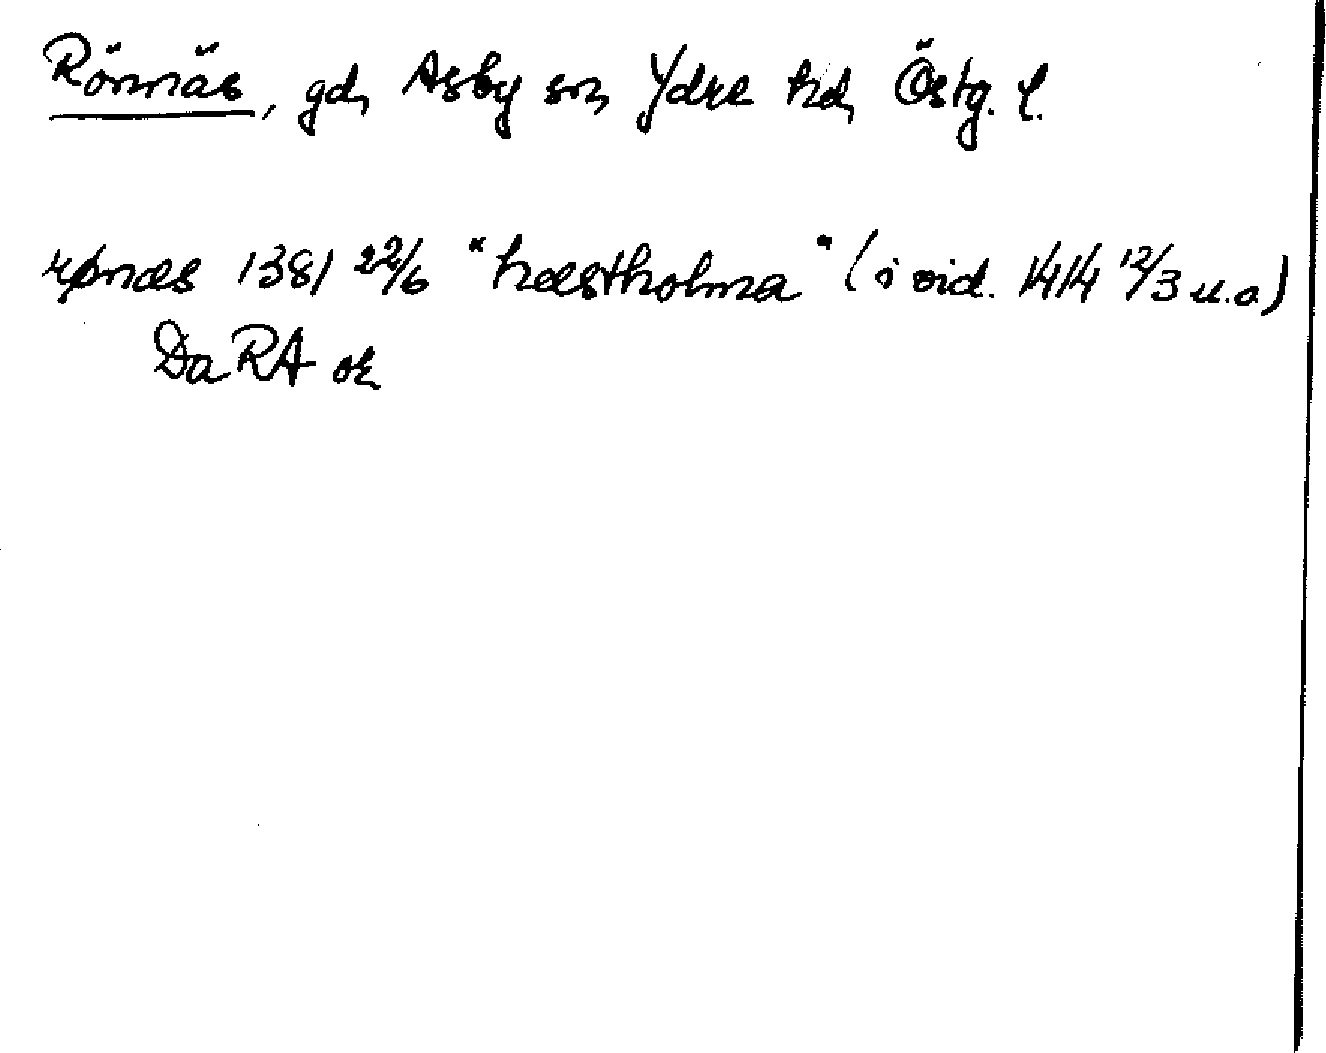 Rönnäs, gd, Asby sn, Ydre hd, Östg. l.
rønæs 1381 22/6 "hæstholma" (i vid. 1414 12/3 u.o)
Da RA or